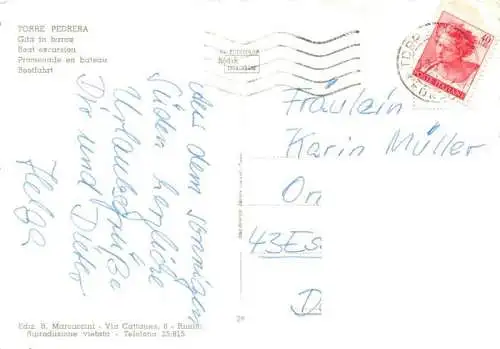 TORRE PEDRERA
Gita in barca
Boat excursion
Promenade en bateau
Bootfahrt
Aus dem sonnigen
Süden herzliche
Urlaubsgrüße
Dir und Dieter
Helga
POSTE ITALIANE
Fräulein
Karin Müller
43 Es
Ediz. B. Marcaccini - Via Cattaneo, 6 - Rimini
Riproduzione vietata - Telefono 25.815